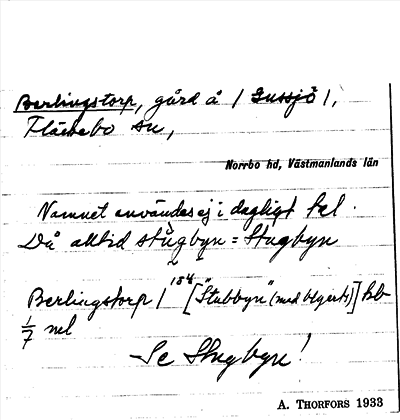 Berlingstorp, gård å / Gussjö /,
Fläckebo sn,
Norrbo hd, Västmanlands län
Namnet användes ej i dagligt tal.
Då alltid stugbyn = Stugbyn
Berlingstorp 1 ["Stubbyn" (med blyerts)]
1/7 mtl
Se Stugbyn!
A. THORFORS 1933